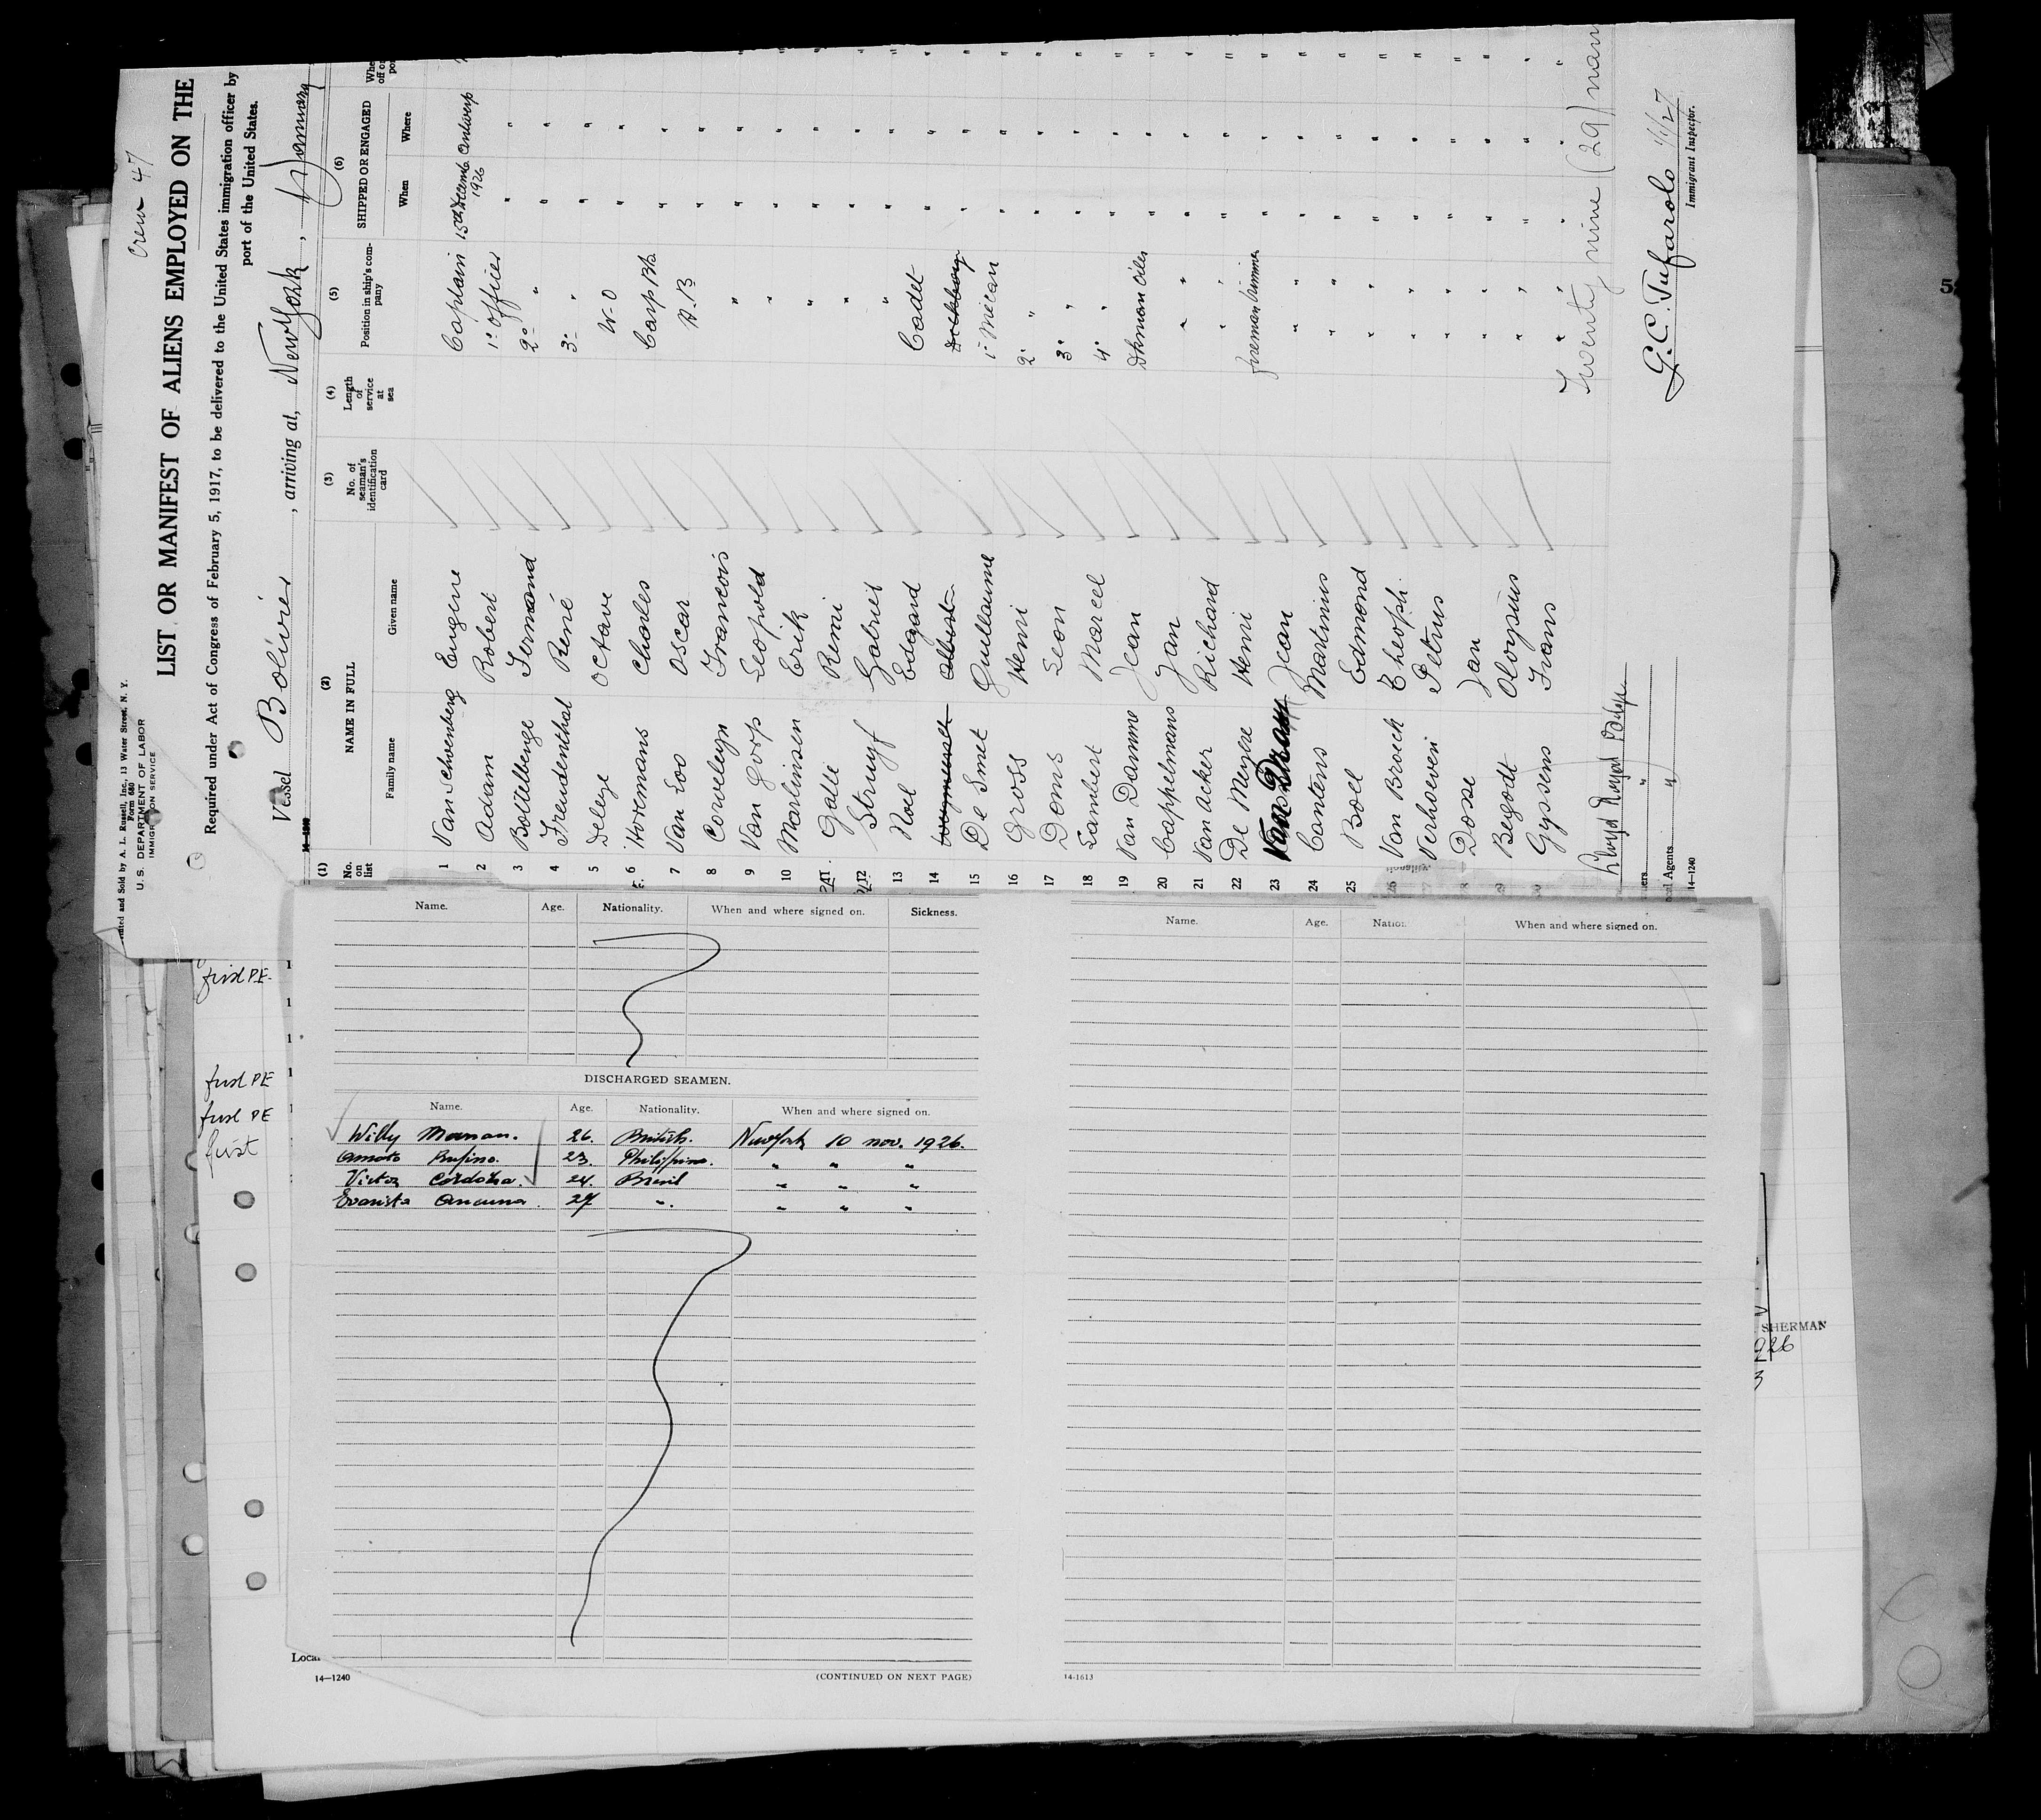 Crew 47
Printed and Sold by A. L. Russell, Inc., 13 Water Street, N. Y.
Form 680
U. S. DEPARTMENT OF LABOR
IMMIGRATION SERVICE
LIST OR MANIFEST OF ALIENS EMPLOYED ON THE
Required under Act of Congress of February 5, 1917, to be delivered to the United States immigration officer by
port of the United States.
Vessel Bolivier, arriving at, New York, January
(1) (2) (3) (4) (5) (6)
No. on list NAME IN FULL No. of seaman's identification card Length of service at sea Position in ship's company SHIPPED OR ENGAGED
Family name Given name When Where
1 Van Schoenberg Eugene Captain 15th December 1926 Antwerp
2 Adam Robert 1° officer " "
3 Bottelberge Fernand 2° " " "
4 Freudenthal René 3° " " "
5 Delege Octave W-O " "
6 Horemans Charles " "
7 Van Loo Oscar A.B " "
8 Corveleyn Francois " " "
9 Van Gorp Leopold " " "
10 Martinsen Erik " " "
11 Galle Remi " " "
12 Struyf Gabriel " " "
13 Noel Edgard Cadet " "
14 Albert " "
15 De Smet Guillaume 1° Mecan " "
16 Gross Henri 2° " " "
17 Dons Leon 3° " " "
18 Lambert Marcel 4° " " "
19 Van Damme Jean Dkman Oiler " "
20 Cappelmans Jan " " " "
21 Van Acker Richard " " " "
22 De Meyere Henri fireman trimmer " "
23 Jean " " " "
24 Contens Martinus " " " "
25 Boel Edmond " " " "
Van Broeck Theoph. " " " "
Verhoeven Petrus " " " "
Dosse Jan " " " "
Begodt Aloysius " " " "
Gyssens Frans " " " "
Twenty nine (29) nam
Lloyd Royal Belge
G. C. Tufarolo 1/1/27
Immigrant Inspector.
14-1240
Name. Age. Nationality. When and where signed on. Sickness.
DISCHARGED SEAMEN.
Name. Age. Nationality. When and where signed on.
Willy Marnan. 26. British. New York 10 nov. 1926.
Amato Rufino. 23. Philippine. " " "
Victor Cordoba. 24. Brasil " " "
Evarista 27 " " " "
14—1240
(CONTINUED ON NEXT PAGE)
Name. Age. When and where signed on.
14-1613
first P.E.
first PE
first PE
first
SHERMAN
1926